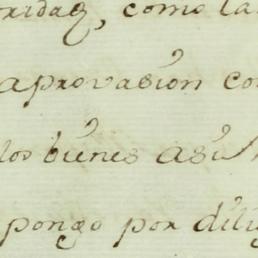 oridad, como la
aprovasion co
los bienes asi
pongo por dili